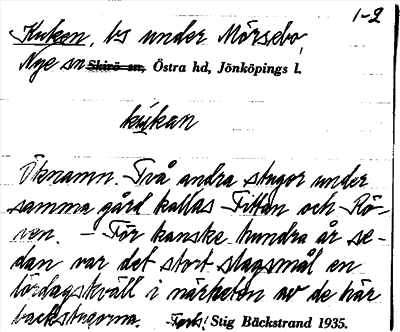 1-2
Kuken, bs under Mörsebo,
Nye sn Skirö sn, Östra hd, Jönköpings l.
kukan
Öknamn. Två andra stugor under
samma gård kallas Fittan och Rö-
ven. – För kanske hundra år se-
dan var det stort slagsmål en
lördagskväll i närheten av de här
backstugorna. Stig Bäckstrand 1935.